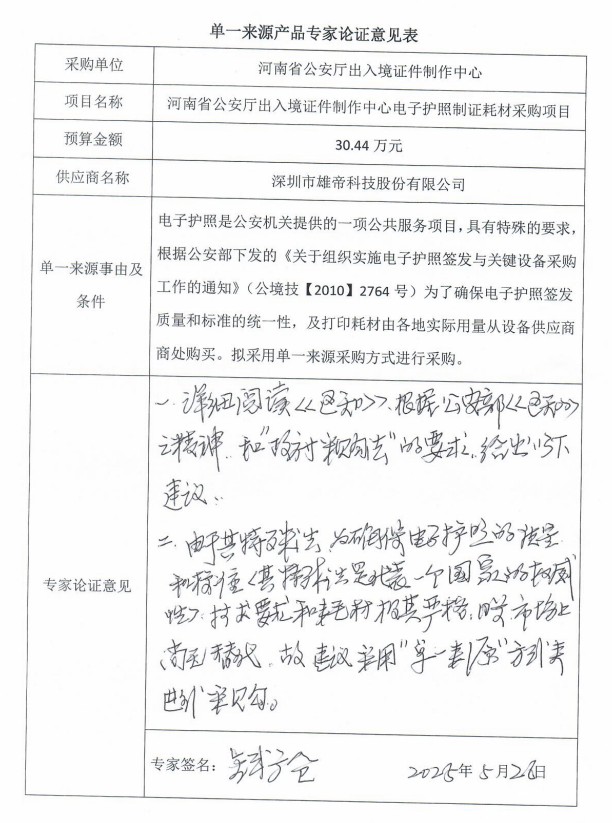 单一来源产品专家论证意见表
采购单位
河南省公安厅出入境证件制作中心
项目名称
河南省公安厅出入境证件制作中心电子护照制证耗材采购项目
预算金额
30.44 万元
供应商名称
深圳市雄帝科技股份有限公司
单一来源事由及
条件
电子护照是公安机关提供的一项公共服务项目，具有特殊的要求，
根据公安部下发的《关于组织实施电子护照签发与关键设备采购
工作的通知》（公境技【2010】2764 号）为了确保电子护照签发
质量和标准的统一性，及打印耗材由各地实际用量从设备供应商
商处购买。拟采用单一来源采购方式进行采购。
专家论证意见
一、详细阅读<<通知>>、根据公安部<<通知>>
之精神、和"政府采购法"的要求、给出以下
建议：
二、由于其特殊性、为确保电子护照的质量
和标准<其特殊性是代表一个国家的权威
性>、技术要求和耗材极其严格、市场上
尚无替代、故建议采用"单一来源"方式来
进行采购。
专家签名：
2025年5月26日